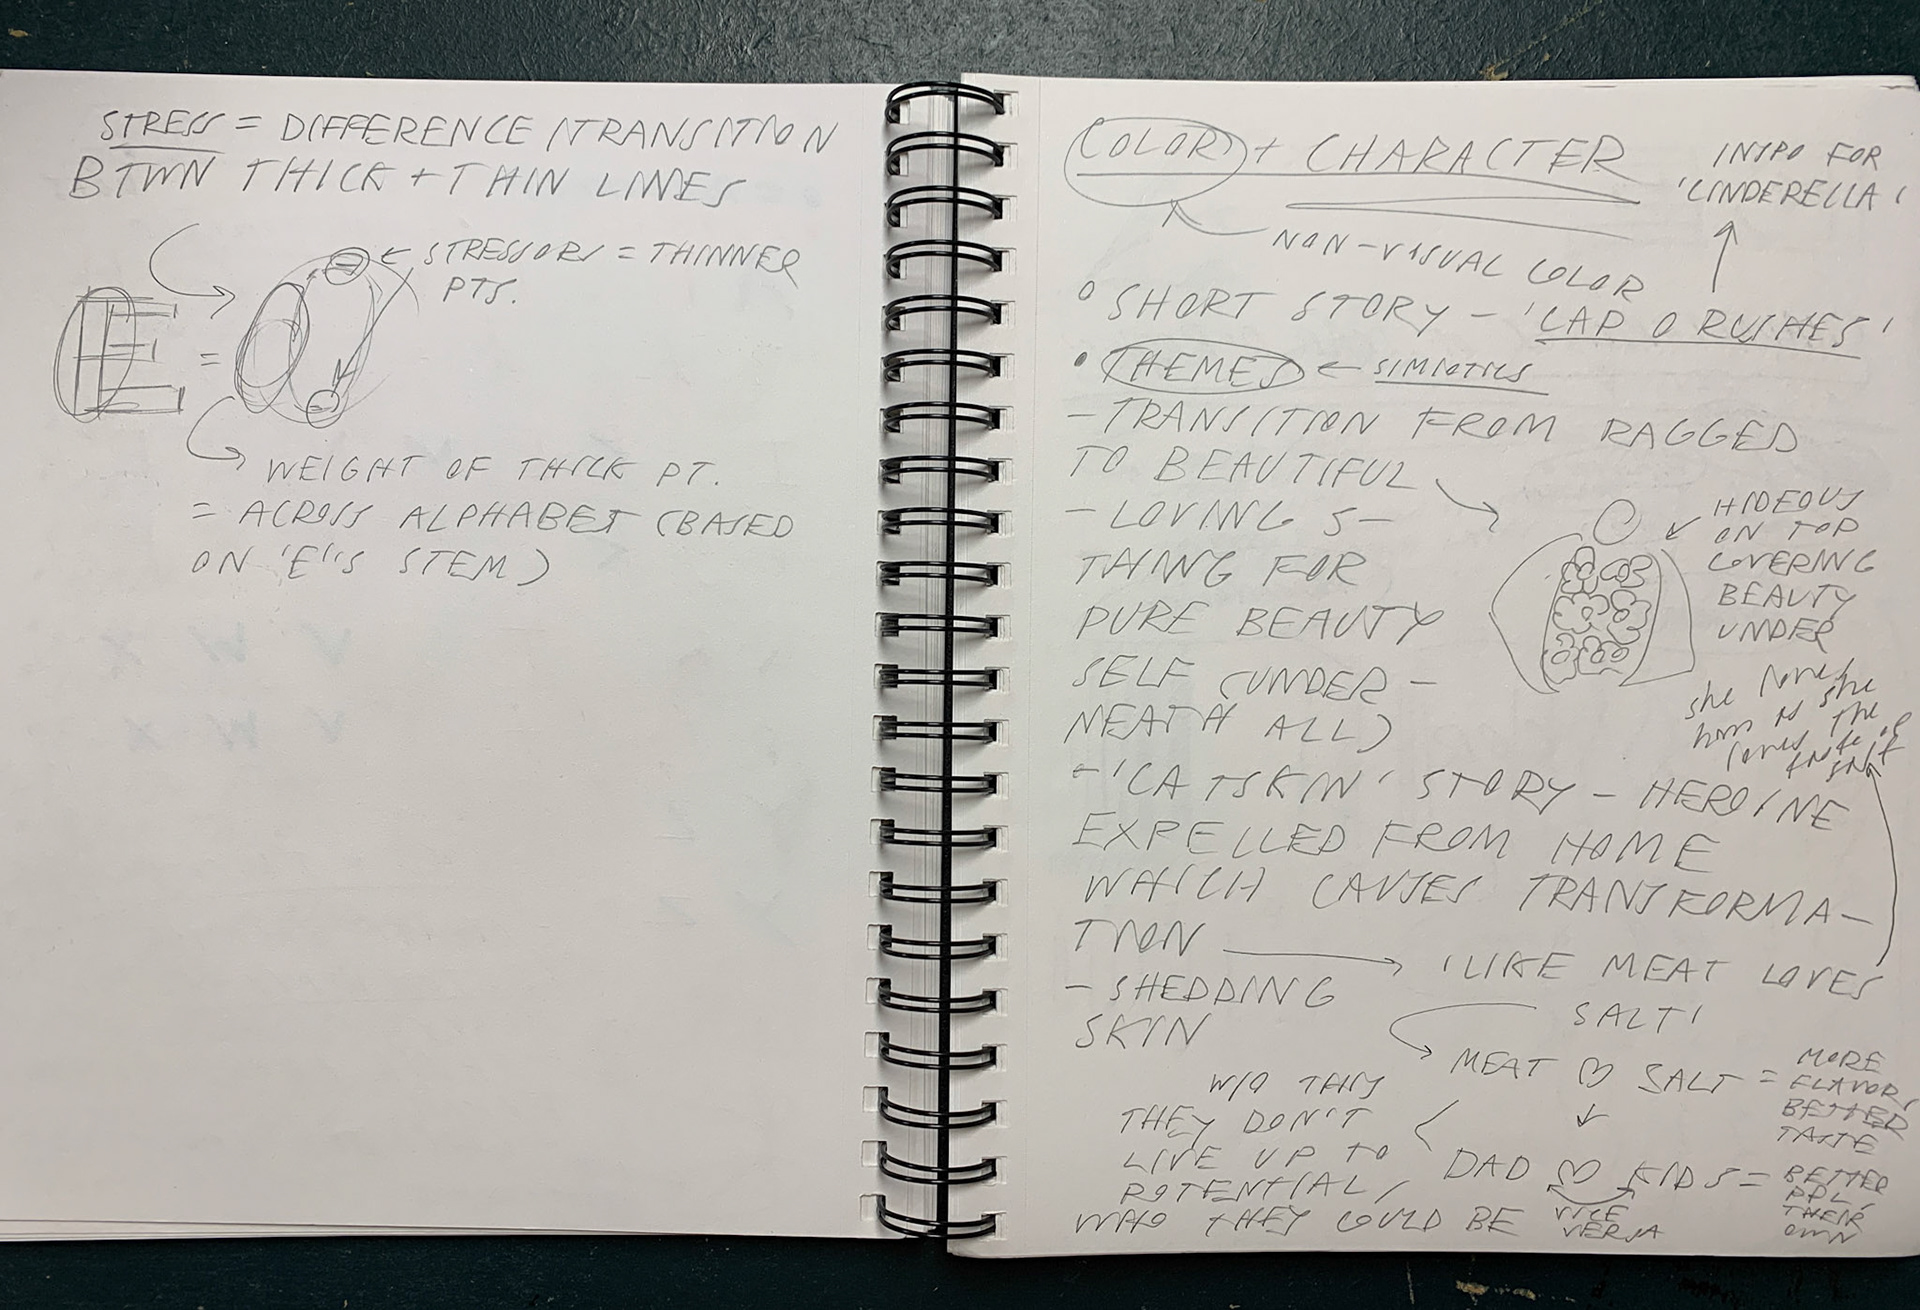 STRESS = DIFFERENCE/TRANSITION
BTWN THICK + THIN LINES
← STRESSORS = THINNER
PTS.
E = O
WEIGHT OF THICK PT.
= ACROSS ALPHABET (BASED
ON 'E''S STEM)
COLOR + CHARACTER
INTRO FOR
'CINDERELLA'
NON-VISUAL COLOR
• SHORT STORY - 'CAP O RUSHES'
• THEMES ← SIMIOTICS
- TRANSITION FROM RAGGED
TO BEAUTIFUL
- LOVING S-
THING FOR
PURE BEAUTY
SELF (UNDER-
NEATH ALL)
HIDEOUS
ON TOP
COVERING
BEAUTY
UNDER
she loves
him as she
loves the
taste of
salt
- 'CATSKIN' STORY - HEROINE
EXPELLED FROM HOME
WHICH CAUSES TRANSFORMA-
TION → 'LIKE MEAT LOVES
SALT'
- SHEDDING
SKIN
MEAT ♡ SALT =
MORE
FLAVOR,
BETTER
TASTE
W/O THIS
THEY DON'T
LIVE UP TO
POTENTIAL,
WHO THEY COULD BE
DAD ♡ KIDS =
VICE
VERSA
BETTER
PPL,
THEIR
OWN